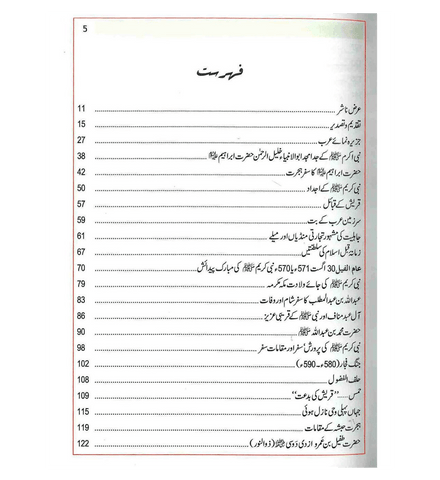 5
فہرست
عرض ناشر 11
تقدیم و تصدیر 15
جزیرہ نمائے عرب 27
نبی اکرم ﷺ کے جد امجد ابوالانبیاء خلیل الرحمٰن حضرت ابراہیم علیہ السلام 38
حضرت ابراہیم علیہ السلام کا سفر ہجرت 42
نبی کریم ﷺ کے اجداد 50
قریش کے قبائل 57
سرزمین عرب کے بت 59
جاہلیت کی مشہور تجارتی منڈیاں اور میلے 61
زمانہ قبل اسلام کی سلطنتیں 67
عام الفیل 30 اگست 571ء یا 570ء نبی کریم ﷺ کی مبارک پیدائش 70
نبی کریم ﷺ کی جائے ولادت مکہ مکرمہ 79
عبداللہ بن عبدالمطلب کا سفر شام اور وفات 83
آل عبد مناف اور نبی ﷺ کے قریبی عزیز 86
حضرت محمد بن عبداللہ ﷺ 90
نبی کریم ﷺ کی پرورش، سفر اور مقامات سفر 98
جنگ فجار (580ء۔590ء) 102
حلف الفضول 108
حمس ..... "قریش کی بدعت" 109
جہاں پہلی وحی نازل ہوئی 115
ہجرت حبشہ کے مقامات 119
حضرت طفیل بن عمرو ازدی دوسی رضی اللہ عنہ (ذوالنور) 122